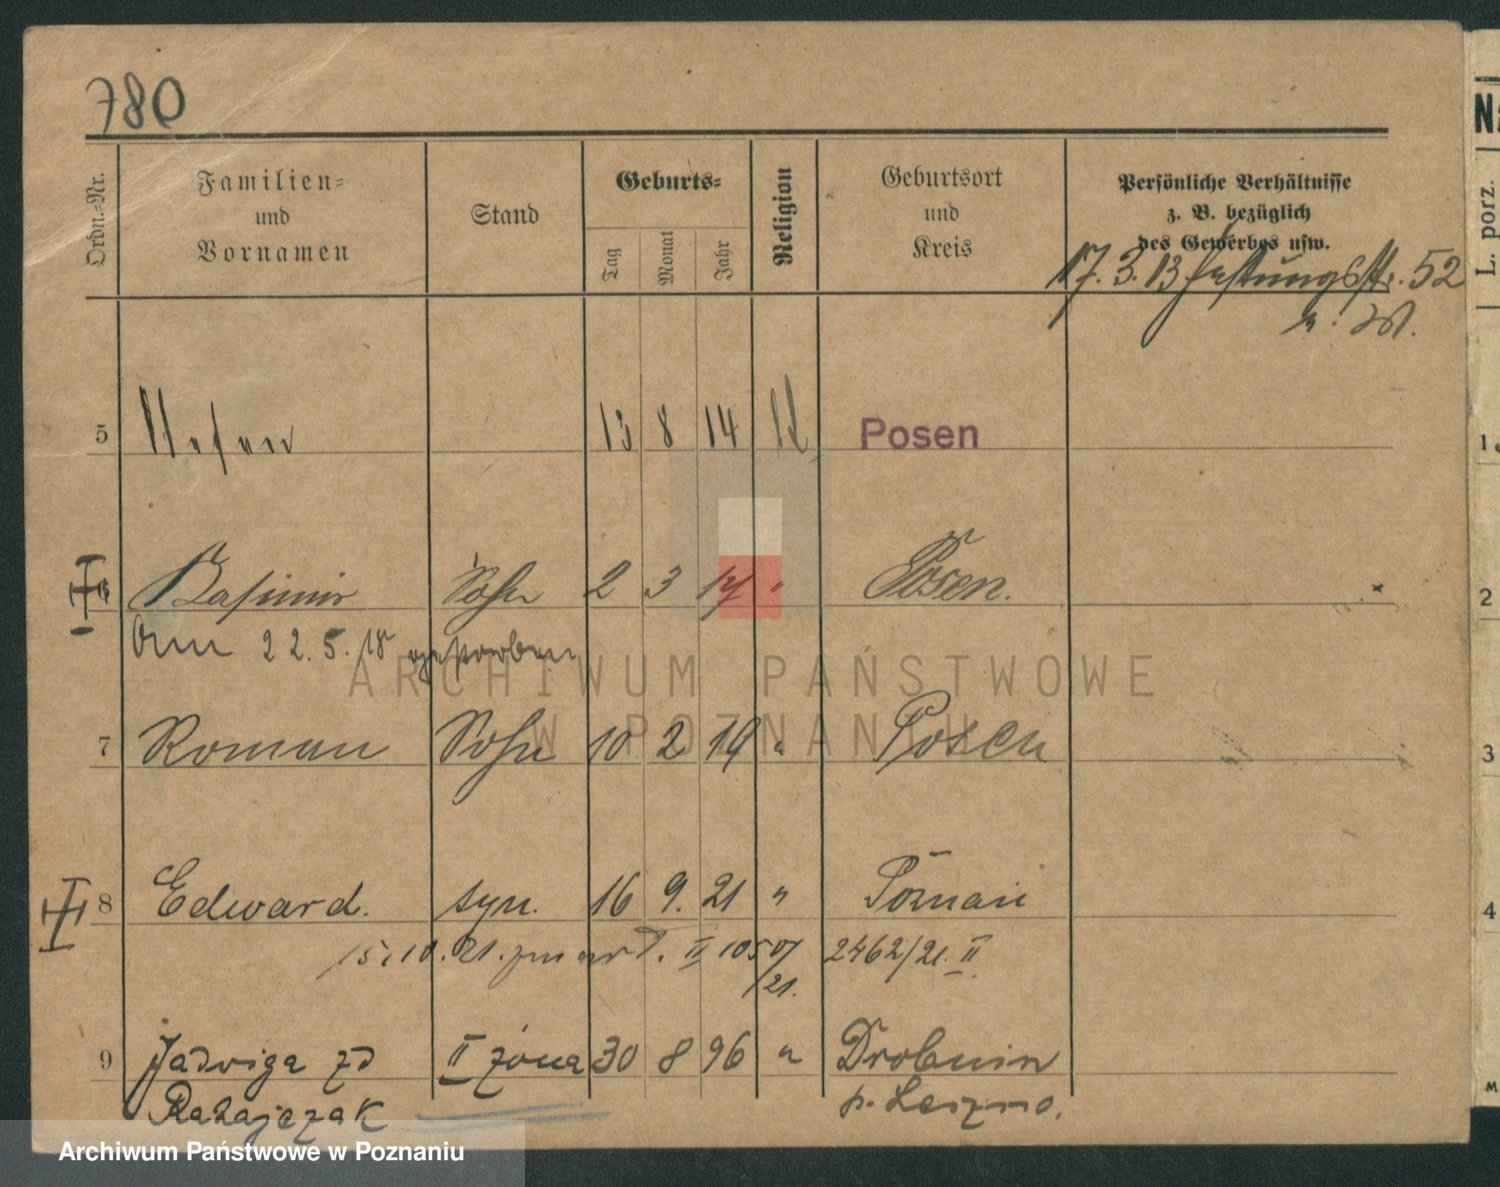 780
Ordn.-Nr.
Familien-
und
Vornamen
Stand
Geburts-
Tag
Monat
Jahr
Religion
Geburtsort
und
Kreis
Persönliche Verhältnisse
z. B. bezüglich
des Gewerbes usw.
17. 3. 13 Festungsstr. 52
5 13 8 14 Posen
6 Sohn 2 3 17 " Posen.
Am 22. 5. 18 gestorben
7 Roman Sohn 10 2 19 " Posen
8 Edward. syn. 16 9. 21 " Poznań
15. 10. 21. zmarł. II 10507/21. 2462/21. II
9 Jadwiga zd II żona 30 8 96 " Drobnin
Ratajczak p. Leszno.
Na
L. porz.
1.
2
3
4
M
ARCHIWUM PAŃSTWOWE
W POZNANIU
Archiwum Państwowe w Poznaniu